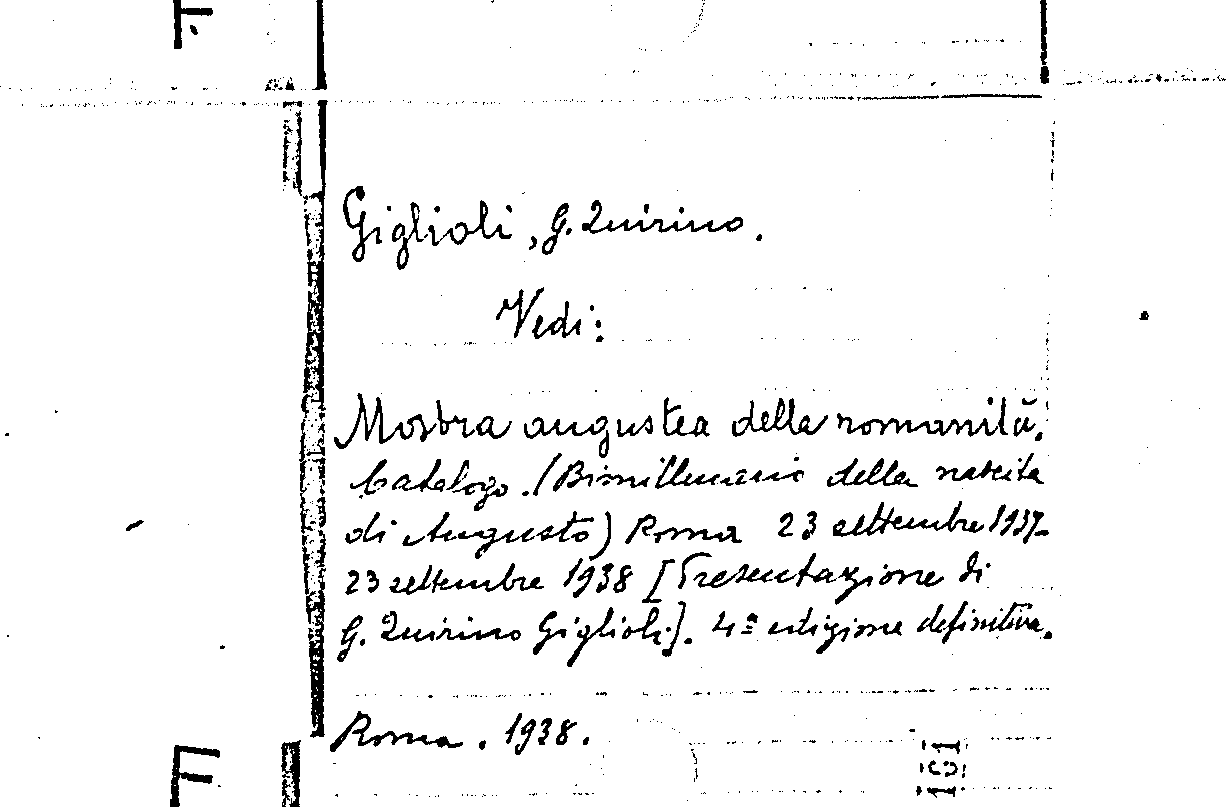 Giglioli, G. Quirino.
Vedi:
Mostra augustea della romanità.
Catalogo. (Bimillenario della nascita
di Augusto) Roma 23 settembre 1937-
23 settembre 1938 [Presentazione di
G. Quirino Giglioli]. 4ª edizione definitiva.
Roma. 1938.